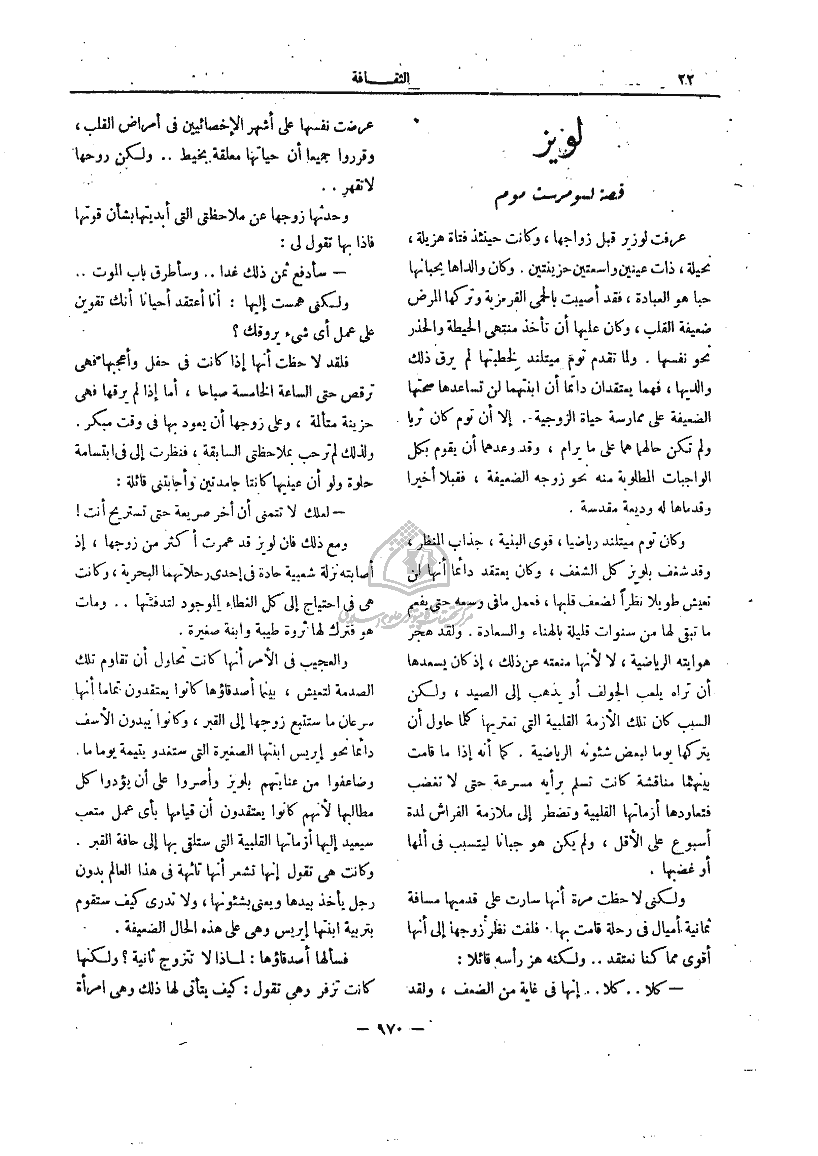 ٢٢
الثقافة
لويز
قصة لسومرست موم
عرفت لوزير قبل زواجها ، وكانت حينئذ فتاة هزيلة ،
نحيلة ، ذات عينين واسعتين حزينتين . وكان والداها يحبانها
حبا هو العبادة ، فقد أصيبت بالحمى القرمزية وتركها المرض
ضعيفة القلب ، وكان عليها أن تأخذ منتهى الحيطة والحذر
نحو نفسها . ولما تقدم توم ميتلند لخطبتها لم يرق ذلك
والديها ، فهما يعتقدان دائما أن ابنتهما لن تساعدها صحتها
الضعيفة على ممارسة حياة الزوجية . إلا أن توم كان ثريا
ولم تكن حالهما هما على ما يرام ، وقد وعدهما أن يقوم بكل
الواجبات المطلوبة منه نحو زوجه الضعيفة ، فقبلا أخيرا
وقدماها له وديعة مقدسة .
وكان توم ميتلند رياضيا ، قوى البنية ، جذاب المنظر ،
وقد شغف بلويز كل الشغف ، وكان يعتقد دائما أنها لن
تعيش طويلا نظراً لضعف قلبها ، فعمل مافى وسعه حتى يفعم
ما تبقى لها من سنوات قليلة بالهناء والسعادة . ولقد هجر
هوايته الرياضية ، لا لأنها منعته عن ذلك ، إذ كان يسعدها
أن تراه يلعب الجولف أو يذهب إلى الصيد ، ولكن
السبب كان تلك الأزمة القلبية التى تعتريها كلما حاول أن
يتركها يوما لبعض شئونه الرياضية . كما أنه إذا ما قامت
بينهما مناقشة كانت تسلم برأيه مسرعة حتى لا تغضب
فتعاودها أزماتها القلبية وتضطر إلى ملازمة الفراش لمدة
أسبوع على الأقل ، ولم يكن هو جبانا ليتسبب فى ألمها
أو غضبها .
ولكنى لاحظت مرة أنها سارت على قدميها مسافة
ثمانية أميال فى رحلة قامت بها . فلفت نظر زوجها إلى أنها
أقوى مما كنا نعتقد .. ولكنه هز رأسه قائلا :
— كلا .. كلا .. إنها فى غاية من الضعف ، ولقد
عرضت نفسها على أشهر الإخصائيين فى أمراض القلب ،
وقرروا جميعا أن حياتها معلقة بخيط .. ولكن روحها
لاتقهر ..
وحدثها زوجها عن ملاحظتى التى أبديتها بشأن قوتها
فاذا بها تقول لى :
— سأدفع ثمن ذلك غدا .. وسأطرق باب الموت ..
ولكنى همست إليها : أنا أعتقد أحيانا أنك تقوين
على عمل أى شىء يروقك ؟
فلقد لاحظت أنها إذا كانت فى حفل وأعجبها فهى
ترقص حتى الساعة الخامسة صباحا ، أما إذا لم يرقها فهى
حزينة متألمة ، وعلى زوجها أن يعود بها فى وقت مبكر .
ولذلك لم ترحب بملاحظتى السابقة ، فنظرت إلى فى ابتسامة
حلوة ولو أن عينيها كانتا جامدتين وأجابتنى قائلة :
— لعلك لا تتمنى أن أخر صريعة حتى تستريح أنت !
ومع ذلك فان لويز قد عمرت أكثر من زوجها ، إذ
أصابته نزلة شعبية حادة فى إحدى رحلاتهما البحرية ، وكانت
هى فى احتياج إلى كل الغطاء الموجود لتدفئتها .. ومات
هو فترك لها ثروة طيبة وابنة صغيرة .
والعجيب فى الأمر أنها كانت تحاول أن تقاوم تلك
الصدمة لتعيش ، بينما أصدقاؤها كانوا يعتقدون تماما أنها
سرعان ما ستتبع زوجها إلى القبر ، وكانوا يبدون الأسف
دائما نحو إيريس ابنتها الصغيرة التى ستغدو يتيمة يوما ما .
وضاعفوا من عنايتهم بلويز وأصروا على أن يؤدوا كل
مطالبها لأنهم كانوا يعتقدون أن قيامها بأى عمل متعب
سيعيد إليها أزماتها القلبية التى ستلقى بها إلى حافة القبر .
وكانت هى تقول إنها تشعر أنها تائهة فى هذا العالم بدون
رجل يأخذ بيدها ويعنى بشئونها ، ولا تدرى كيف ستقوم
بتربية ابنتها إيريس وهى على هذه الحال الضعيفة .
فسألها أصدقاؤها : لماذا لا تتزوج ثانية ؟ ولكنها
كانت تزفر وهى تقول : كيف يتأتى لها ذلك وهى امرأة
— ٩٧٠ —